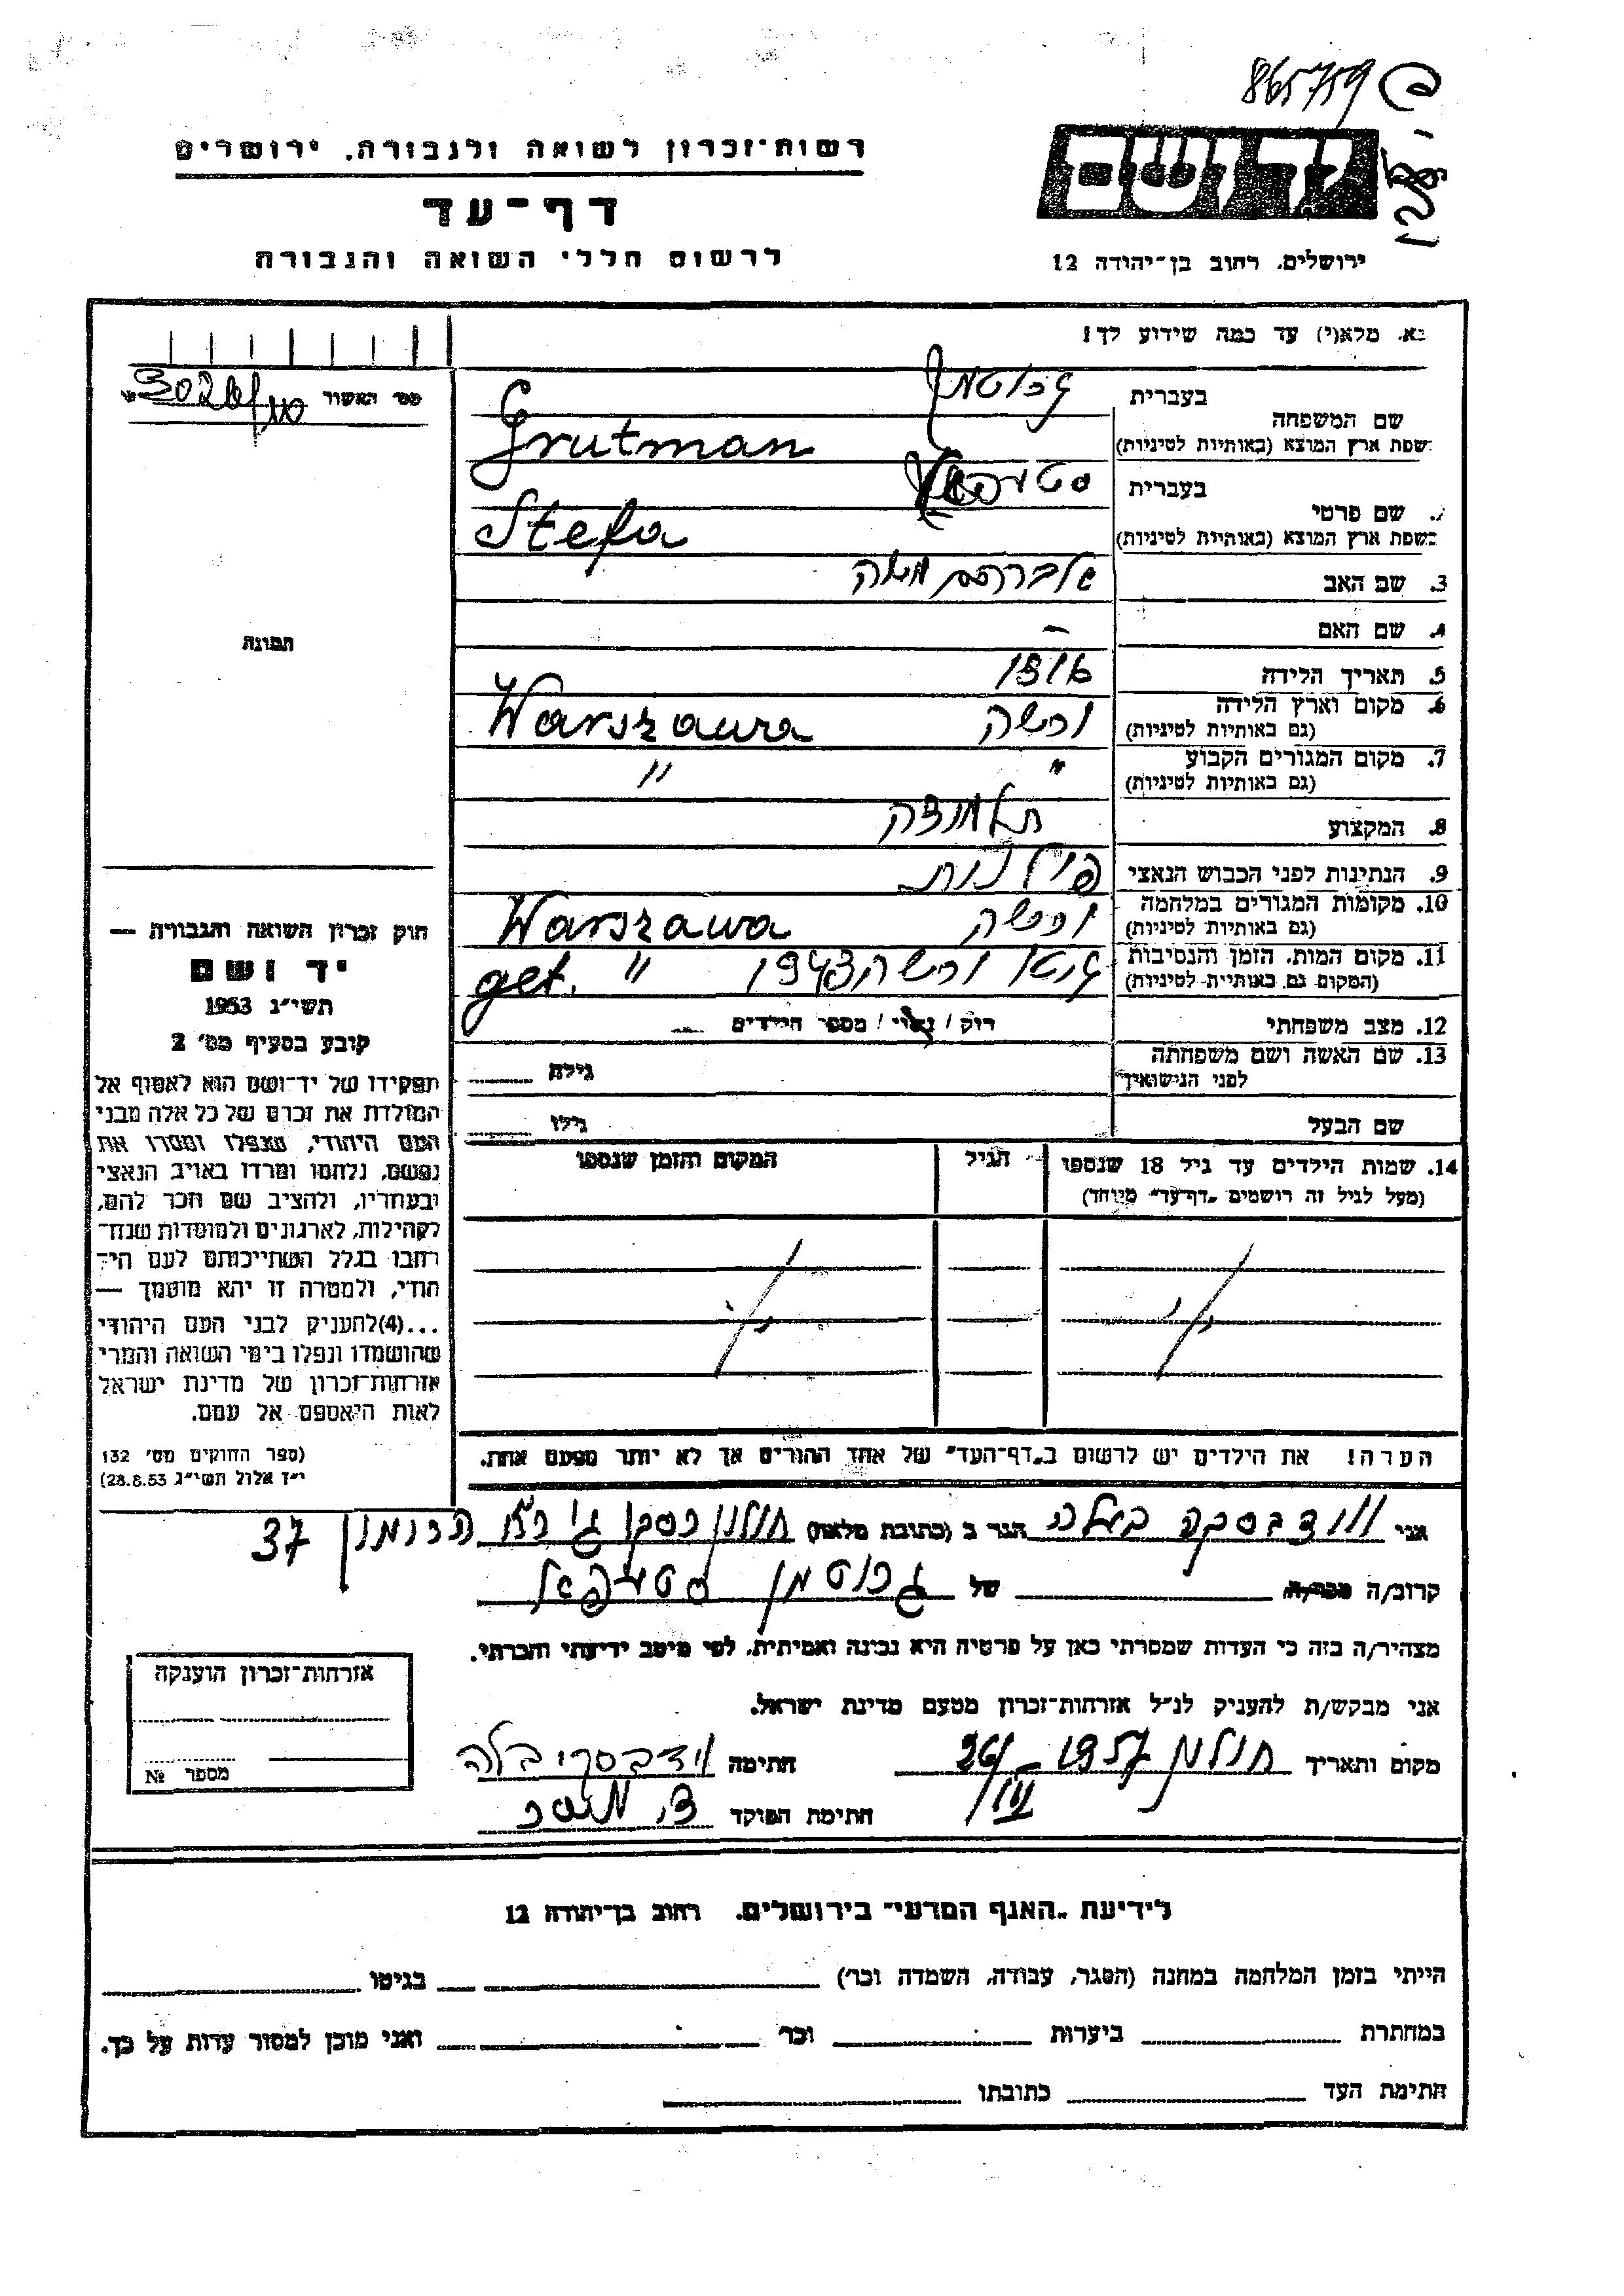 865759
יד ושם
רשות־זכרון לשואה ולגבורה. ירושלים
דף־עד
לרשום חללי השואה והגבורה
ירושלים. רחוב בן־יהודה 12
נא. מלא(י) עד כמה שידוע לך!
מס׳ האשור
שם המשפחה
בעברית גרוטמן
בשפת ארץ המוצא (באותיות לטיניות) Grutman
שם פרטי
בעברית
בשפת ארץ המוצא (באותיות לטיניות) Stefa
3. שם האב אברהם משה
4. שם האם –
5. תאריך הלידה 1916
6. מקום וארץ הלידה (גם באותיות לטיניות) ורשה Warszawa
7. מקום המגורים הקבוע (גם באותיות לטיניות) " "
8. המקצוע תלמידה
9. הנתינות לפני הכבוש הנאצי פולנית
10. מקומות המגורים במלחמה (גם באותיות לטיניות) ורשה Warszawa
11. מקום המות. הזמן והנסיבות (המקום גם באותיות לטיניות) גיטו ורשה 1943 " get.
12. מצב משפחתי רוק / נשוי / מספר הילדים
13. שם האשה ושם משפחתה לפני הנישואין גילה
שם הבעל גילו
14. שמות הילדים עד גיל 18 שנספו
(מעל לגיל זה רושמים „דף־עד" מיוחד)
הגיל
המקום והזמן שנספו
הערה! את הילדים יש לרשום ב„דף־העד" של אחד ההורים אך לא יותר מפעם אחת.
תמונה
חוק זכרון השואה והגבורה —
יד ושם
תשי״ג 1953
קובע בסעיף מס׳ 2
תפקידו של יד־ושם הוא לאסוף אל
המולדת את זכרם של כל אלה מבני
העם היהודי, שנפלו ומסרו את
נפשם, נלחמו ומרדו באויב הנאצי
ובעוזריו, ולהציב שם וזכר להם,
לקהילות, לארגונים ולמוסדות שנח־
רבו בגלל השתייכותם לעם הי־
הודי, ולמטרה זו יהא מוסמך —
...(4) להעניק לבני העם היהודי
שהושמדו ונפלו בימי השואה והמרי
אזרחות־זכרון של מדינת ישראל
לאות היאספם אל עמם.
(ספר החוקים מס׳ 132
י״ז אלול תשי״ג 28.8.53)
אני בלה הגר ב (כתובת מלאה) חולון 37
קרוב/ה מכר/ה של גרוטמן
מצהיר/ה בזה כי העדות שמסרתי כאן על פרטיה היא נכונה ואמיתית, לפי מיטב ידיעתי והכרתי.
אני מבקש/ת להעניק לנ״ל אזרחות־זכרון מטעם מדינת ישראל.
מקום ותאריך חולון 1957 חתימה בלה
חתימת הפוקד
אזרחות־זכרון הוענקה
מספר №
לידיעת „האגף המדעי" בירושלים. רחוב בן־יהודה 12
הייתי בזמן המלחמה במחנה (הסגר, עבודה, השמדה וכו׳) בגיטו
במחתרת ביערות וכו׳ ואני מוכן למסור עדות על כך.
חתימת העד כתובתו